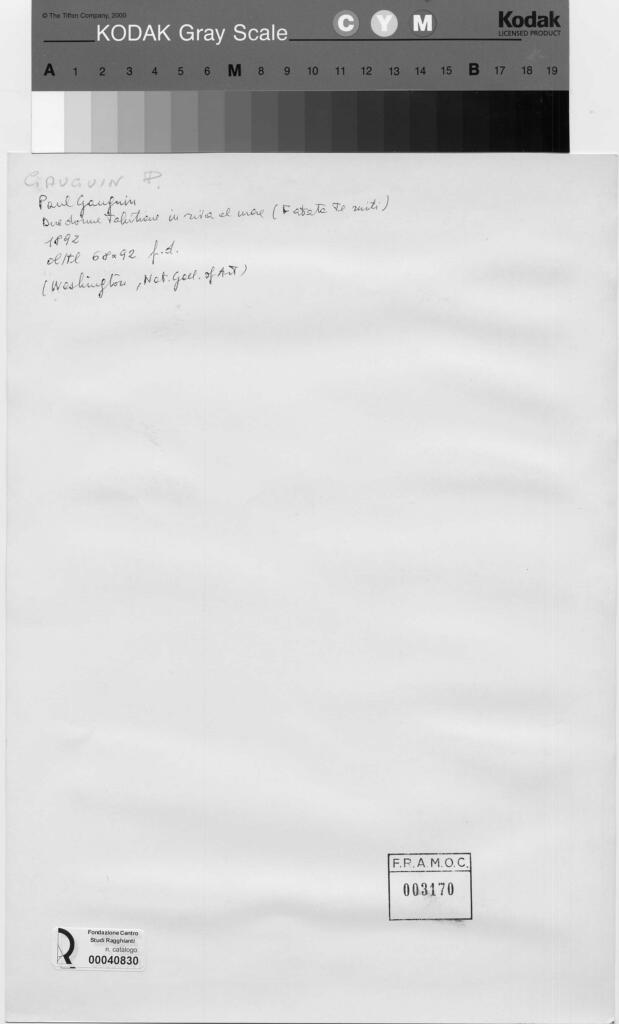 © The Tiffen Company, 2000
KODAK Gray Scale
C Y M
Kodak
LICENSED PRODUCT
A 1 2 3 4 5 6 M 8 9 10 11 12 13 14 15 B 17 18 19
GAUGUIN P.
Paul Gauguin
Due donne Tahitiane in riva al mare (Fatata te miti)
1892
ol/tl 68x92 f.d.
(Washington, Nat. Gall. of Art)
F.R.A.M.O.C.
003170
Fondazione Centro
Studi Ragghianti
n. catalogo
00040830